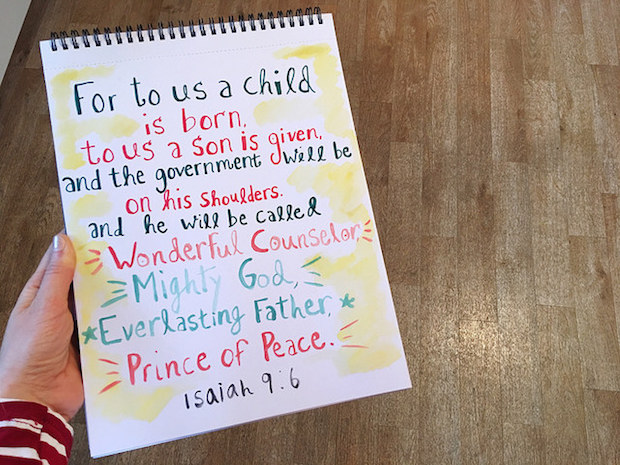 For to us a child
is born,
to us a son is given,
and the government will be
on his shoulders.
and he will be called
Wonderful Counselor,
Mighty God,
Everlasting Father,
Prince of Peace.
Isaiah 9:6